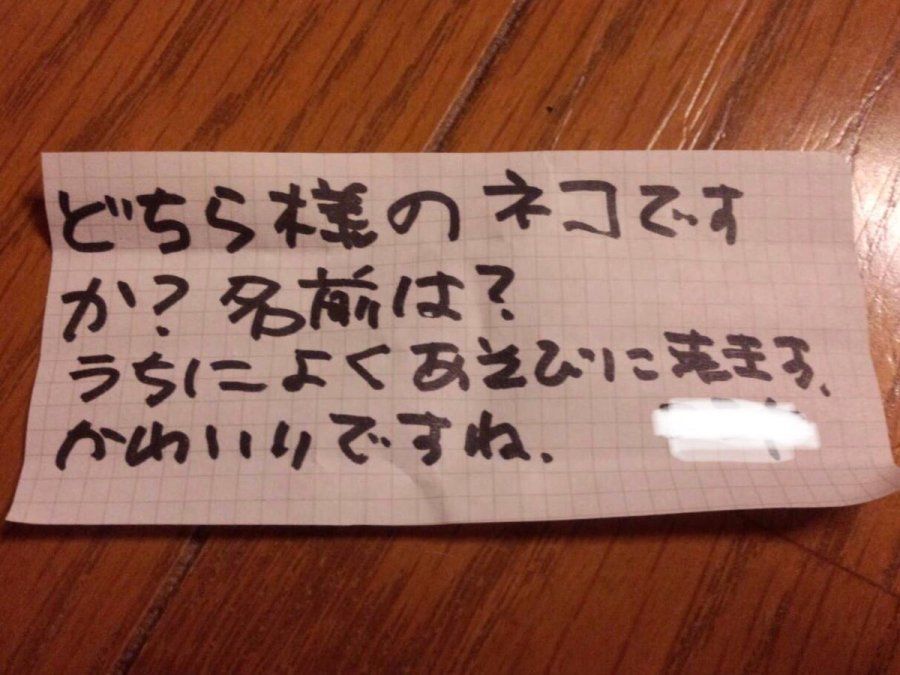 どちら様のネコです
か?名前は?
うちによくあそびに来ます、
かわいいですね、